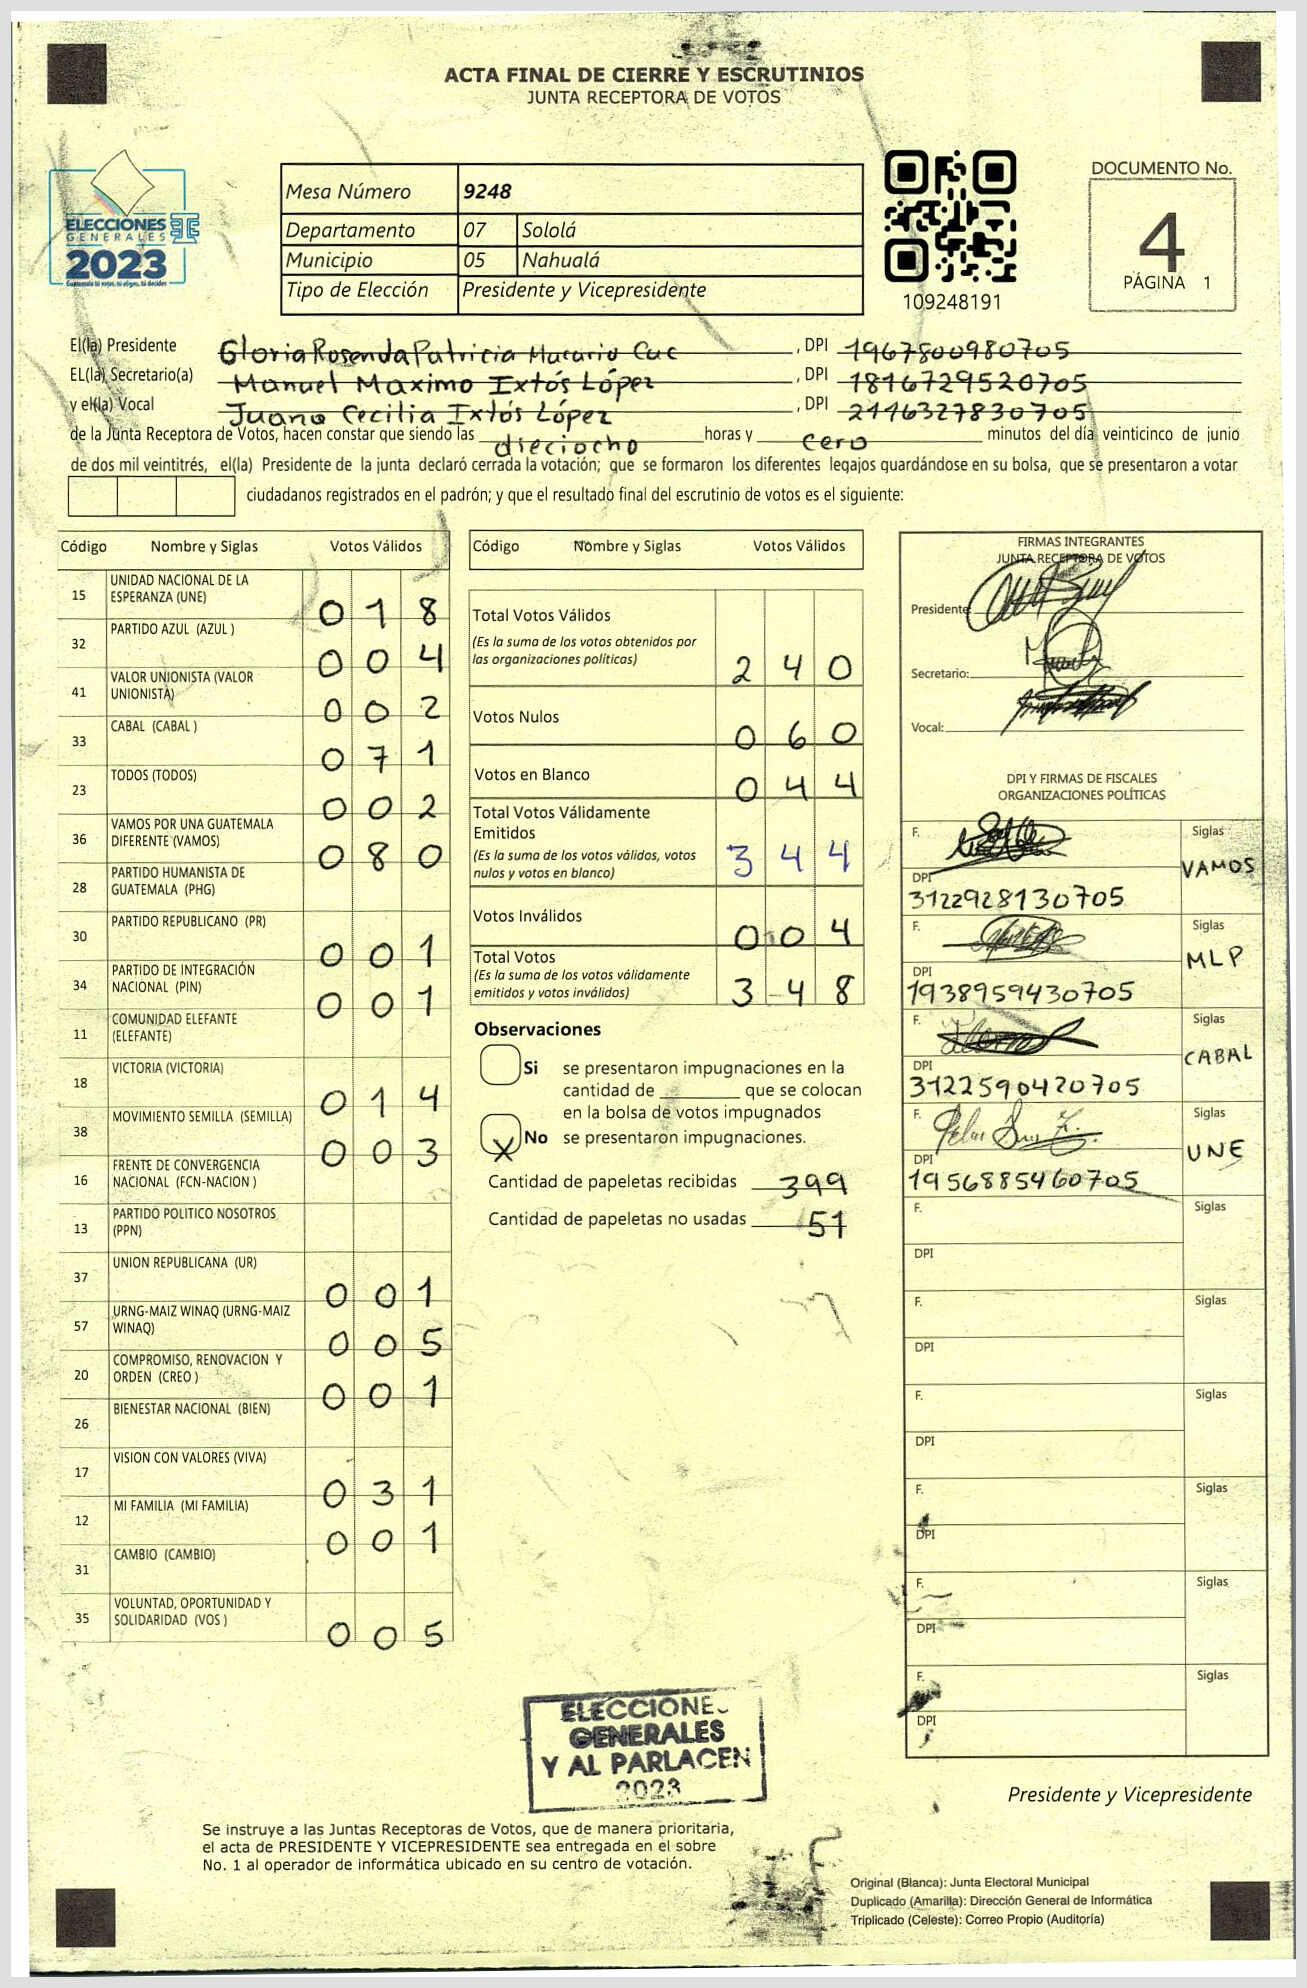 ACTA FINAL DE CIERRE Y ESCRUTINIOS
JUNTA RECEPTORA DE VOTOS
ELECCIONES
GENERALES
2023
Guatemala tú votas, tú eliges, tú decides
Mesa Número 9248
Departamento 07 Sololá
Municipio 05 Nahualá
Tipo de Elección Presidente y Vicepresidente
109248191
DOCUMENTO No.
4
PÁGINA 1
El(la) Presidente Gloria Rosenda Patricia Macario Cuc , DPI 1967800980705
EL(la) Secretario(a) Manuel Maximo Ixtós López , DPI 1816729520705
y el(la) Vocal Juana Cecilia Ixtós López , DPI 2116327830705
de la Junta Receptora de Votos, hacen constar que siendo las dieciocho horas y cero minutos del día veinticinco de junio
de dos mil veintitrés, el(la) Presidente de la junta declaró cerrada la votación; que se formaron los diferentes legajos guardándose en su bolsa, que se presentaron a votar
ciudadanos registrados en el padrón; y que el resultado final del escrutinio de votos es el siguiente:
Código Nombre y Siglas Votos Válidos
15 UNIDAD NACIONAL DE LA ESPERANZA (UNE) 018
32 PARTIDO AZUL (AZUL ) 004
41 VALOR UNIONISTA (VALOR UNIONISTA) 002
33 CABAL (CABAL ) 071
23 TODOS (TODOS) 002
36 VAMOS POR UNA GUATEMALA DIFERENTE (VAMOS) 080
28 PARTIDO HUMANISTA DE GUATEMALA (PHG)
30 PARTIDO REPUBLICANO (PR) 001
34 PARTIDO DE INTEGRACIÓN NACIONAL (PIN) 001
11 COMUNIDAD ELEFANTE (ELEFANTE)
18 VICTORIA (VICTORIA) 014
38 MOVIMIENTO SEMILLA (SEMILLA) 003
16 FRENTE DE CONVERGENCIA NACIONAL (FCN-NACION )
13 PARTIDO POLITICO NOSOTROS (PPN)
37 UNION REPUBLICANA (UR) 001
57 URNG-MAIZ WINAQ (URNG-MAIZ WINAQ) 005
20 COMPROMISO, RENOVACION Y ORDEN (CREO ) 001
26 BIENESTAR NACIONAL (BIEN)
17 VISION CON VALORES (VIVA) 031
12 MI FAMILIA (MI FAMILIA) 001
31 CAMBIO (CAMBIO)
35 VOLUNTAD, OPORTUNIDAD Y SOLIDARIDAD (VOS ) 005
Código Nombre y Siglas Votos Válidos
Total Votos Válidos
(Es la suma de los votos obtenidos por
las organizaciones políticas) 240
Votos Nulos 060
Votos en Blanco 044
Total Votos Válidamente
Emitidos
(Es la suma de los votos válidos, votos
nulos y votos en blanco) 344
Votos Inválidos 004
Total Votos
(Es la suma de los votos válidamente
emitidos y votos inválidos) 348
Observaciones
Si se presentaron impugnaciones en la
cantidad de ________ que se colocan
en la bolsa de votos impugnados
X No se presentaron impugnaciones.
Cantidad de papeletas recibidas 399
Cantidad de papeletas no usadas 51
FIRMAS INTEGRANTES
JUNTA RECEPTORA DE VOTOS
Presidente:
Secretario:
Vocal:
DPI Y FIRMAS DE FISCALES
ORGANIZACIONES POLÍTICAS
F. Siglas
VAMOS
DPI
3122928130705
F. Siglas
MLP
DPI
1938959430705
F. Siglas
CABAL
DPI
3122590420705
F. Siglas
UNE
DPI
1956885460705
F. Siglas
DPI
F. Siglas
DPI
F. Siglas
DPI
F. Siglas
DPI
F. Siglas
DPI
F. Siglas
DPI
ELECCIONES
GENERALES
Y AL PARLACEN
2023
Presidente y Vicepresidente
Se instruye a las Juntas Receptoras de Votos, que de manera prioritaria,
el acta de PRESIDENTE Y VICEPRESIDENTE sea entregada en el sobre
No. 1 al operador de informática ubicado en su centro de votación.
Original (Blanca): Junta Electoral Municipal
Duplicado (Amarilla): Dirección General de Informática
Triplicado (Celeste): Correo Propio (Auditoría)